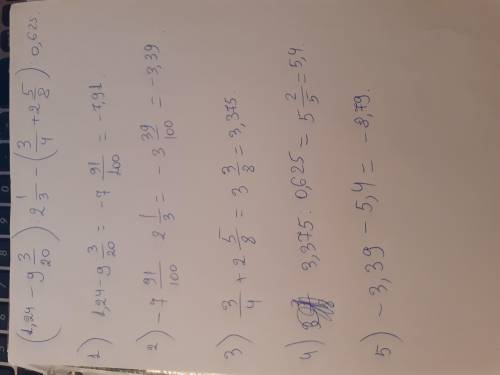 (1,24 - 9 3/20) : 2 1/3 - (3/4 + 2 5/8) : 0,625.
1) 1,24 - 9 3/20 = -7 91/100 = -7,91.
2) -7 91/100 : 2 1/3 = -3 39/100 = -3,39
3) 3/4 + 2 5/8 = 3 3/8 = 3,375
4) 3,375 : 0,625 = 5 2/5 = 5,4.
5) -3,39 - 5,4 = -8,79.